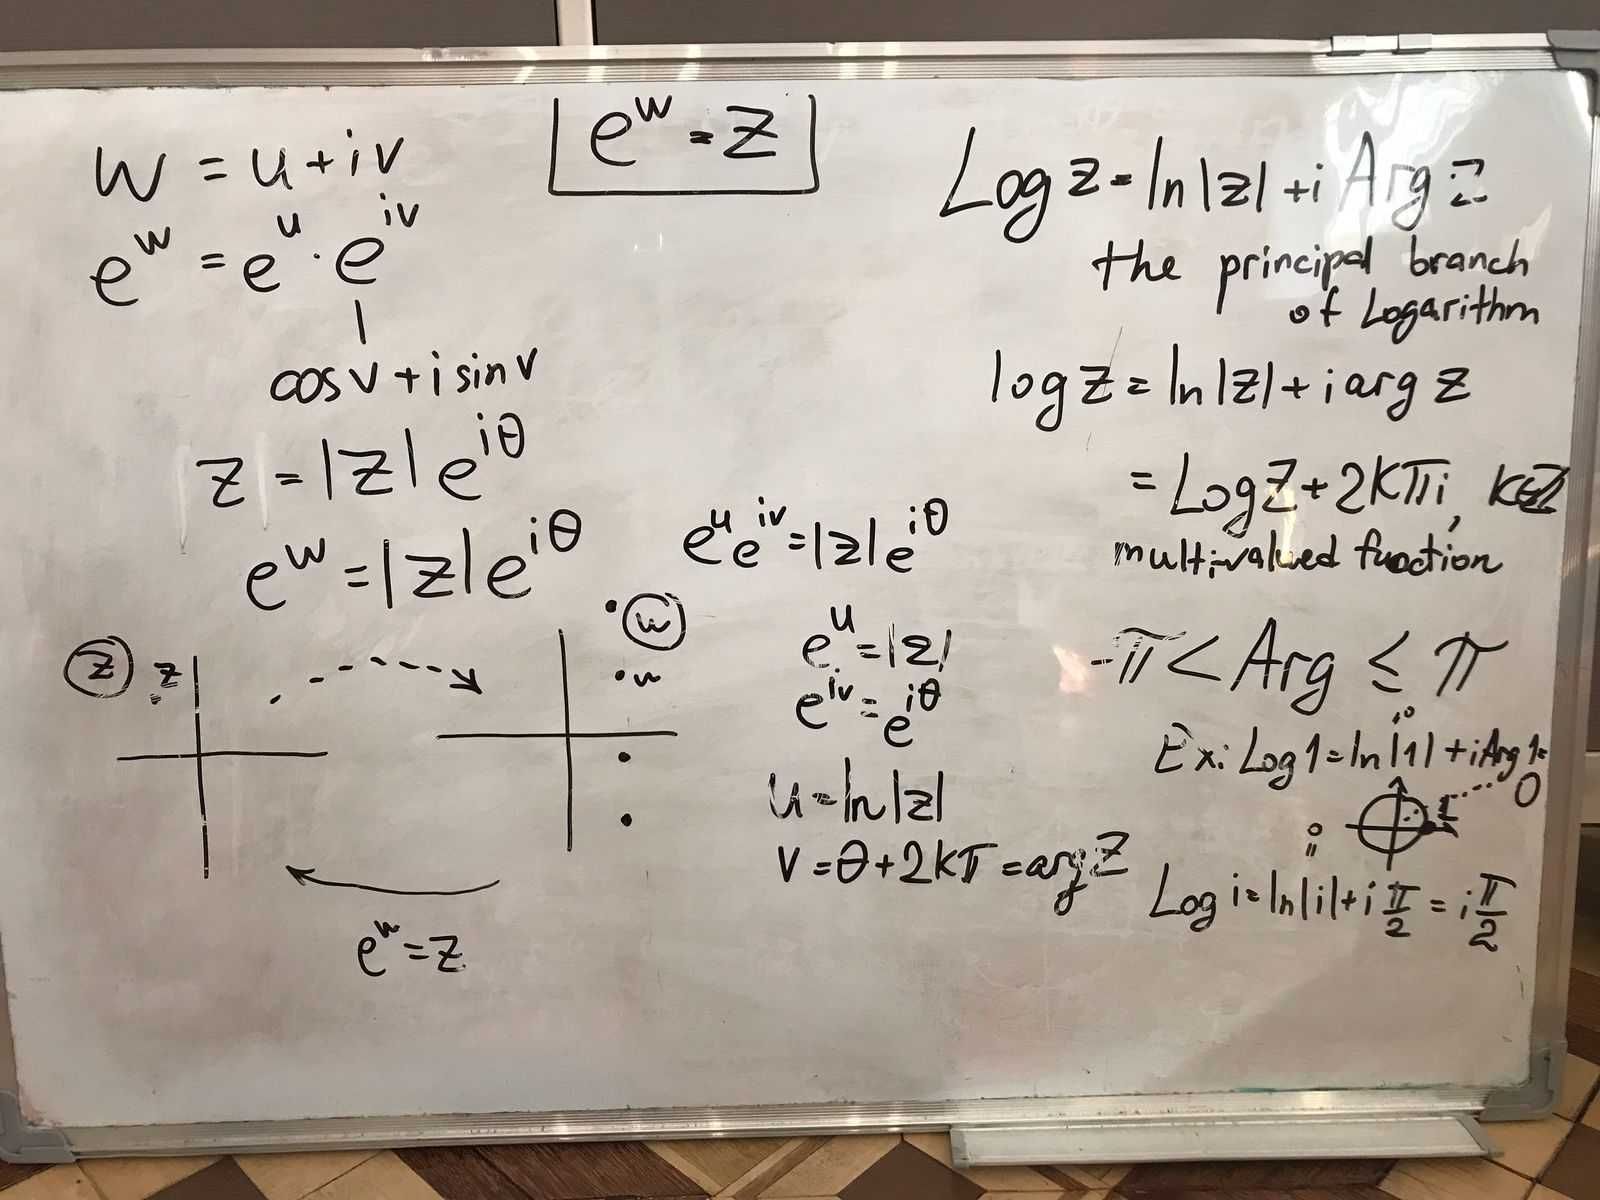 e^w = z
w = u + iv
e^w = e^u · e^{iv}
cos v + i sin v
z = |z| e^{iθ}
e^w = |z| e^{iθ}
z z
w
w
e^w = z
e^u e^{iv} = |z| e^{iθ}
e^u = |z|
e^{iv} = e^{iθ}
u = ln |z|
v = θ + 2kπ = arg z
Log z = ln |z| + i Arg z
the principal branch
of Logarithm
log z = ln |z| + i arg z
= Log z + 2kπi, k∈ℤ
multi-valued function
-π < Arg ≤ π
Ex: Log 1 = ln |1| + i Arg 1 =
0
Log i = ln |i| + i π/2 = i π/2